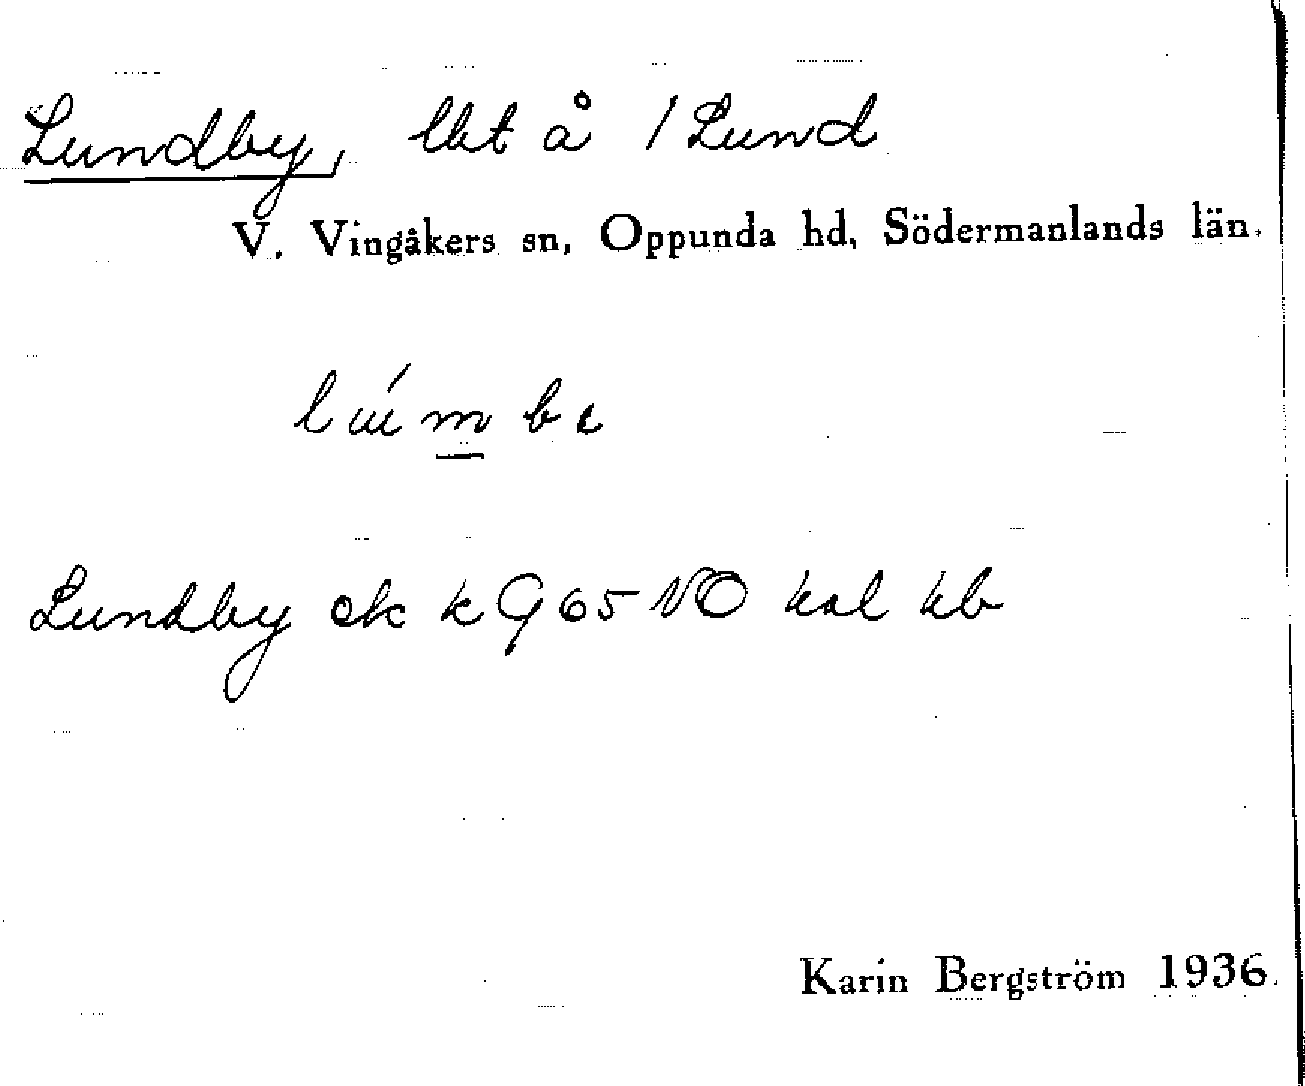 Lundby, lht å / Lund
V. Vingåkers sn, Oppunda hd, Södermanlands län.
Lundby ek k G 65 NO kal kb
Karin Bergström 1936.